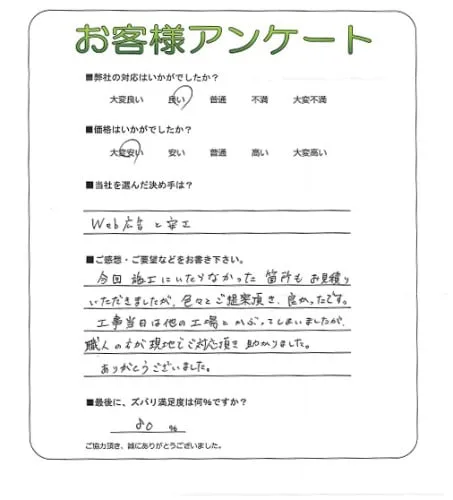 お客様アンケート
■弊社の対応はいかがでしたか？
大変良い 良い 普通 不満 大変不満
■価格はいかがでしたか？
大変安い 安い 普通 高い 大変高い
■当社を選んだ決め手は？
Web広告と安さ
■ご感想・ご要望などをお書き下さい。
今回施工にいたらなかった箇所もお見積り
いただきましたが、色々とご提案頂き、良かったです。
工事当日は他の工場とかぶってしまいましたが、
職人の方が現地でご対応頂き助かりました。
ありがとうございました。
■最後に、ズバリ満足度は何%ですか？
80 %
ご協力頂き、誠にありがとうございました。